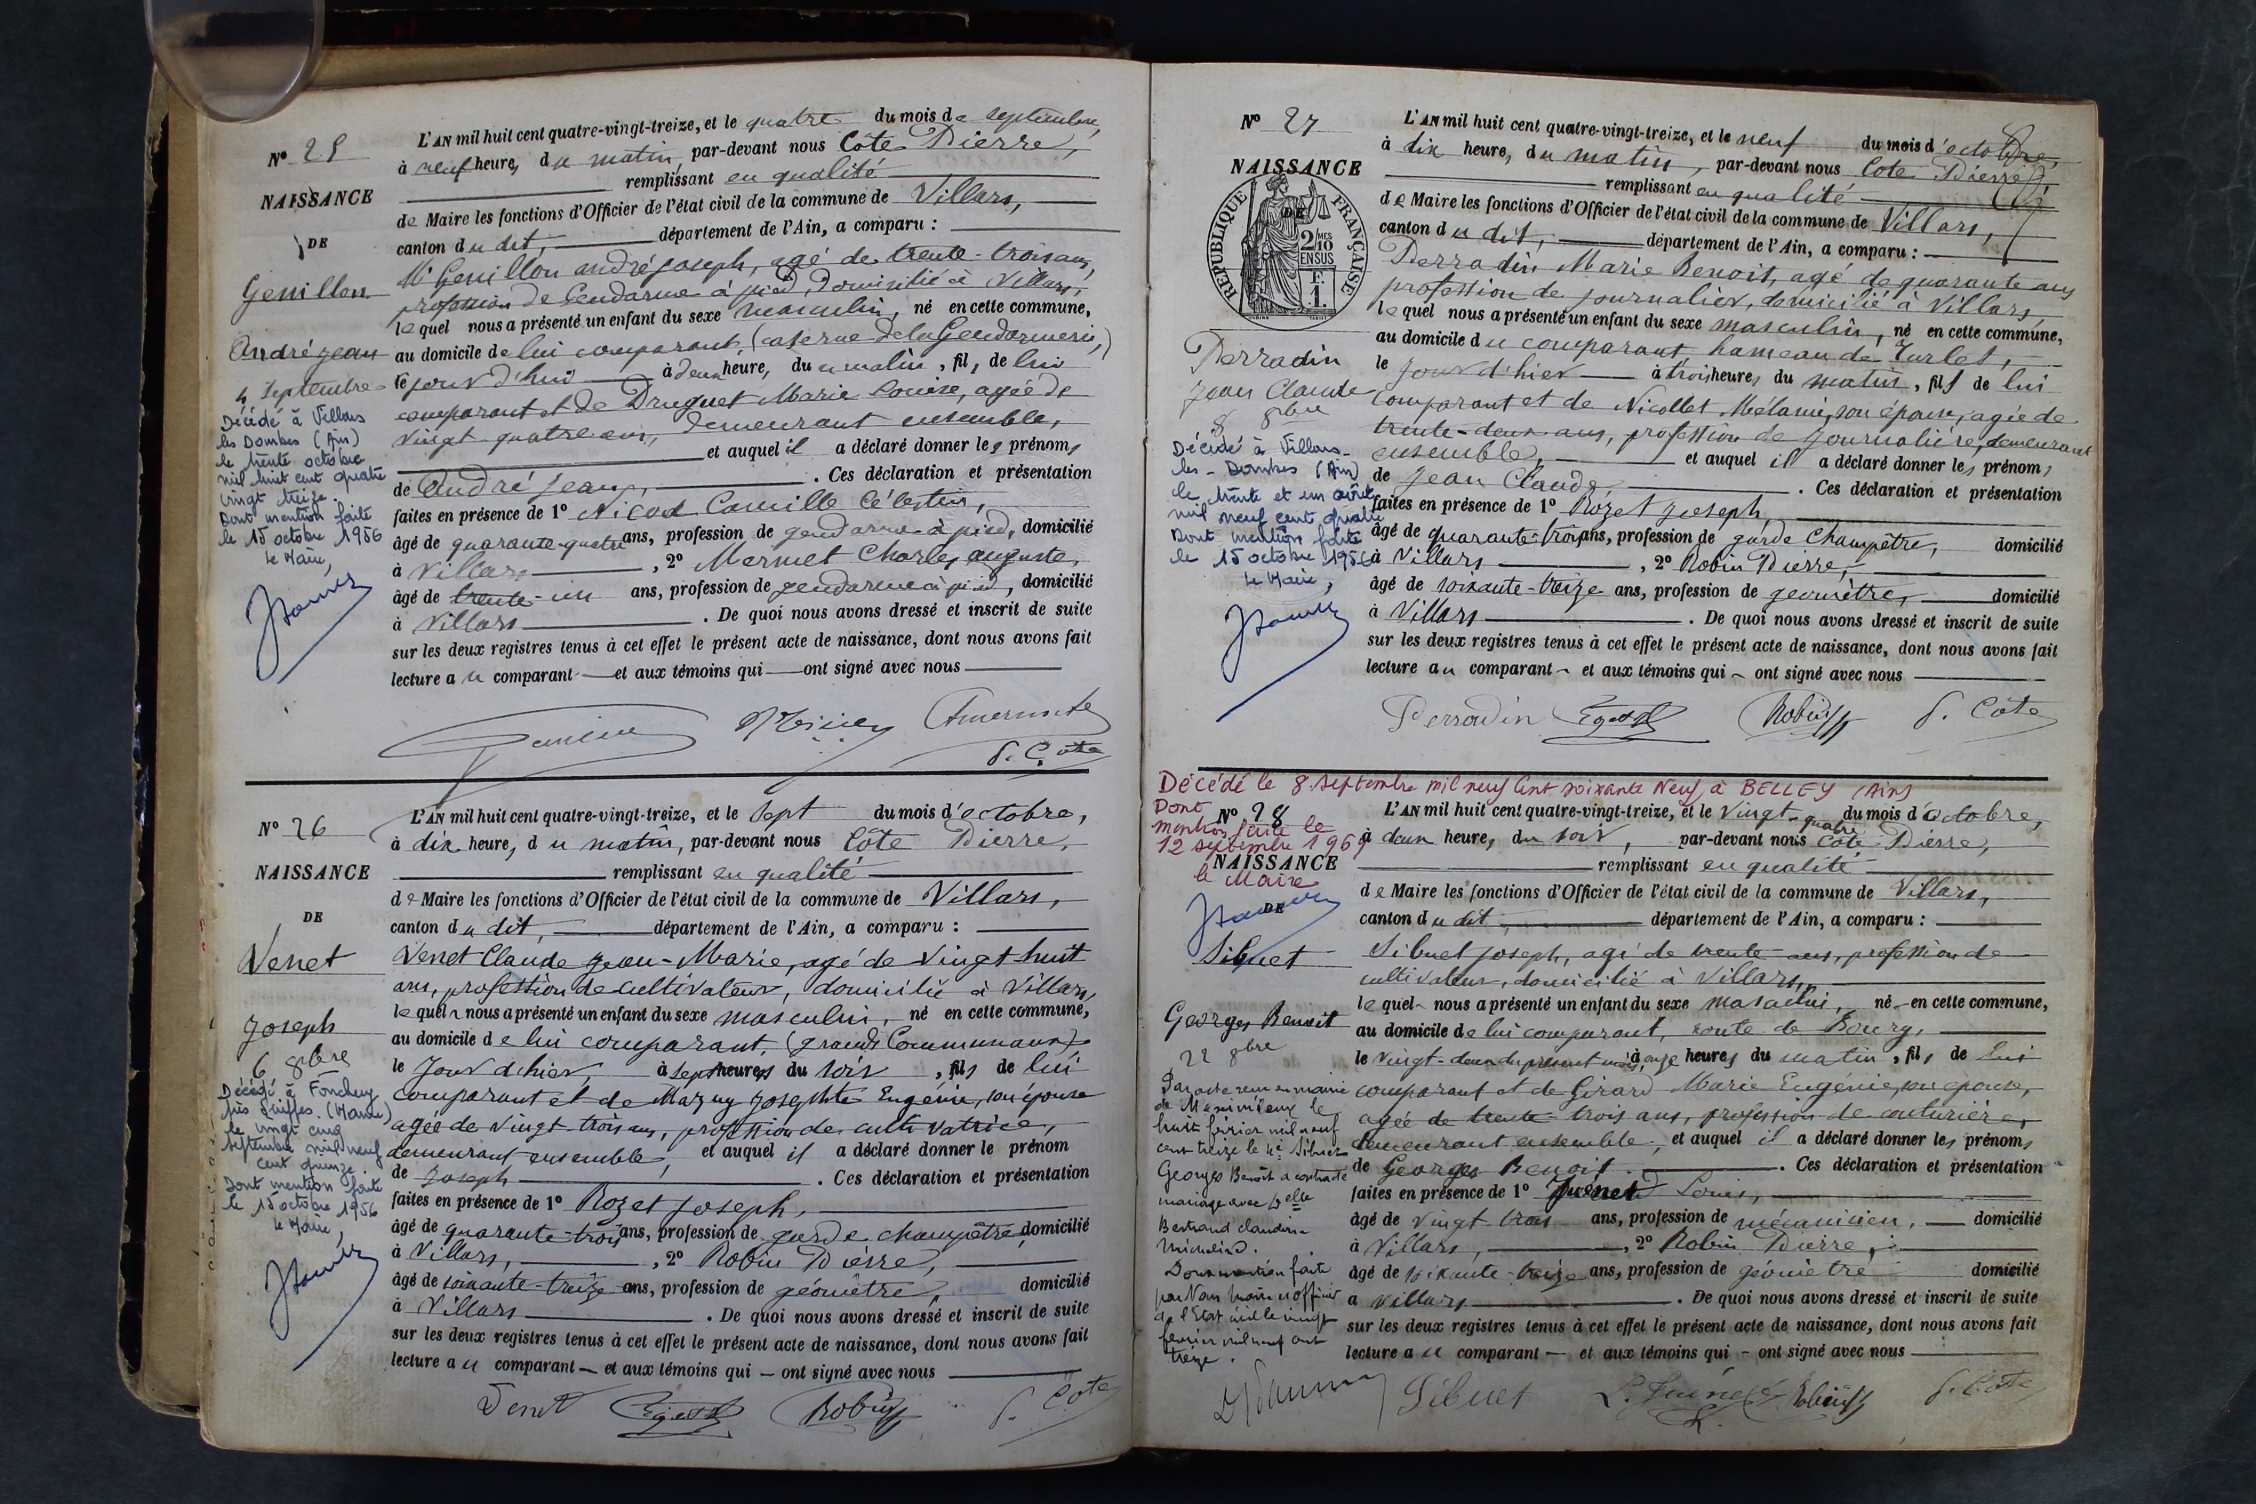 Nº 25
NAISSANCE
DE
Genillon
André Jean
4 Septembre
Décédé à Villars
les Dombes (Ain)
le trente octobre
mil huit cent quatre
vingt treize.
Dont mention faite
le 15 octobre 1956
le Maire,
L'AN mil huit cent quatre-vingt-treize, et le quatre du mois de septembre,
à neuf heures, du matin, par-devant nous Côte Pierre,
remplissant en qualité
de Maire les fonctions d'Officier de l'état civil de la commune de Villars,
canton du dit, département de l'Ain, a comparu :
Mr Genillon andré joseph, agé de trente-trois ans,
profession de Gendarme à pied, domicilié à Villars,
lequel nous a présenté un enfant du sexe masculin, né en cette commune,
au domicile de lui comparant, (caserne de la Gendarmerie,)
le jour d'hui à deux heure, du matin, fils de lui
comparant et de Druguet Marie Louise, agée de
vingt-quatre ans, demeurant ensemble,
et auquel il a déclaré donner les prénoms
de André Jean, . Ces déclaration et présentation
faites en présence de 1º Nicod Camille Célestin,
âgé de quarante-quatre ans, profession de gendarme à pied, domicilié
à Villars , 2º Mermet Charles auguste,
âgé de trente-un ans, profession de gendarme à pied, domicilié
à Villars . De quoi nous avons dressé et inscrit de suite
sur les deux registres tenus à cet effet le présent acte de naissance, dont nous avons fait
lecture au comparant et aux témoins qui ont signé avec nous
P. Côte
Nº 26
NAISSANCE
DE
Venet
Joseph
6 8bre
Décédé à Foncheny
le vingt cinq
septembre mil neuf
cent quinze.
Dont mention faite
le 15 octobre 1956
le Maire,
L'AN mil huit cent quatre-vingt-treize, et le sept du mois d'octobre,
à dix heures, du matin, par-devant nous Côte Pierre,
remplissant en qualité
de Maire les fonctions d'Officier de l'état civil de la commune de Villars,
canton du dit, département de l'Ain, a comparu :
Venet Claude Jean-Marie, agé de vingt huit
ans, profession de cultivateur, domicilié à Villars,
lequel nous a présenté un enfant du sexe masculin, né en cette commune,
au domicile de lui comparant, (grands Communaux)
le jour d'hier, à sept heures du soir, fils de lui
comparant et de Mazuy Josephte Eugénie, son épouse
agée de vingt-trois ans, profession de cultivatrice,
demeurant ensemble, et auquel il a déclaré donner le prénom
de Joseph . Ces déclaration et présentation
faites en présence de 1º Rozet Joseph,
âgé de quarante-trois ans, profession de garde champêtre, domicilié
à Villars, , 2º Robin Pierre,
âgé de soixante-treize ans, profession de géomètre, domicilié
à Villars . De quoi nous avons dressé et inscrit de suite
sur les deux registres tenus à cet effet le présent acte de naissance, dont nous avons fait
lecture au comparant et aux témoins qui ont signé avec nous
Venet Robin P. Côte
Nº 27
NAISSANCE
DE
RÉPUBLIQUE FRANÇAISE
2/10 MES
EN SUS
F.
1.
Perradin
Jean Claude
8 8bre
Décédé à Villars-
les-Dombes (Ain)
le trente et un août
mil neuf cent quatre
Dont mention faite
le 15 octobre 1956
le Maire,
L'AN mil huit cent quatre-vingt-treize, et le neuf du mois d'octobre,
à dix heures, du matin, par-devant nous Côte Pierre,
remplissant en qualité
de Maire les fonctions d'Officier de l'état civil de la commune de Villars,
canton du dit, département de l'Ain, a comparu :
Perradin Marie Benoit, agé de quarante ans
profession de journalier, domicilié à Villars,
lequel nous a présenté un enfant du sexe masculin, né en cette commune,
au domicile du comparant, hameau de Turlet,
le jour d'hier à trois heures du matin, fils de lui
comparant et de Nicollet Mélanie, son épouse, agée de
trente-deux ans, profession de journalière, demeurant
ensemble, et auquel il a déclaré donner les prénoms
de Jean Claude . Ces déclaration et présentation
faites en présence de 1º Rozet Joseph,
âgé de quarante-trois ans, profession de garde champêtre, domicilié
à Villars , 2º Robin Pierre,
âgé de soixante-treize ans, profession de géomètre, domicilié
à Villars . De quoi nous avons dressé et inscrit de suite
sur les deux registres tenus à cet effet le présent acte de naissance, dont nous avons fait
lecture au comparant et aux témoins qui ont signé avec nous
Perradin Robin P. Côte
Décédé le 8 septembre mil neuf cent soixante Neuf à BELLEY (Ain)
Dont
mention faite le
12 septembre 1969
le Maire
Nº 28
NAISSANCE
DE
Sibuet
Georges Benoit
22 8bre
Par acte reçu en mairie
de Meximieux le
huit février mil neuf
cent treize le Sr Sibuet
Georges Benoît a contracté
mariage avec Delle
Bertrand Claudine
Dont mention faite
par Nous Maire officier
de l'Etat civil le vingt
février mil neuf cent
treize.
L'AN mil huit cent quatre-vingt-treize, et le vingt-quatre du mois d'octobre,
à deux heures, du soir, par-devant nous Côte Pierre,
remplissant en qualité
de Maire les fonctions d'Officier de l'état civil de la commune de Villars,
canton du dit, département de l'Ain, a comparu :
Sibuet Joseph, agé de trente ans, profession de
cultivateur, domicilié à Villars,
lequel nous a présenté un enfant du sexe masculin, né en cette commune,
au domicile de lui comparant, route de Bourg,
le vingt-deux du présent mois, à onze heures du matin, fils de lui
comparant et de Girard Marie Eugénie, son épouse,
agée de trente-trois ans, profession de couturière,
demeurant ensemble, et auquel il a déclaré donner les prénoms
de Georges Benoit. . Ces déclaration et présentation
faites en présence de 1º Louis,
âgé de vingt-trois ans, profession de mécanicien, domicilié
à Villars, , 2º Robin Pierre,
âgé de soixante-treize ans, profession de géomètre domicilié
à Villars . De quoi nous avons dressé et inscrit de suite
sur les deux registres tenus à cet effet le présent acte de naissance, dont nous avons fait
lecture au comparant et aux témoins qui ont signé avec nous
Sibuet Robin P. Côte